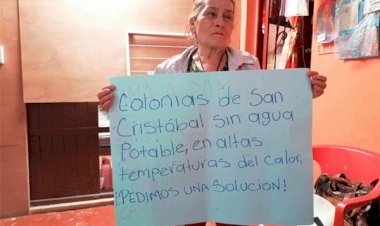 Colonias de San
Cristóbal sin agua
Potable, en altas
temperaturas del Calor,
¡PEDIMOS UNA SOLUCION!